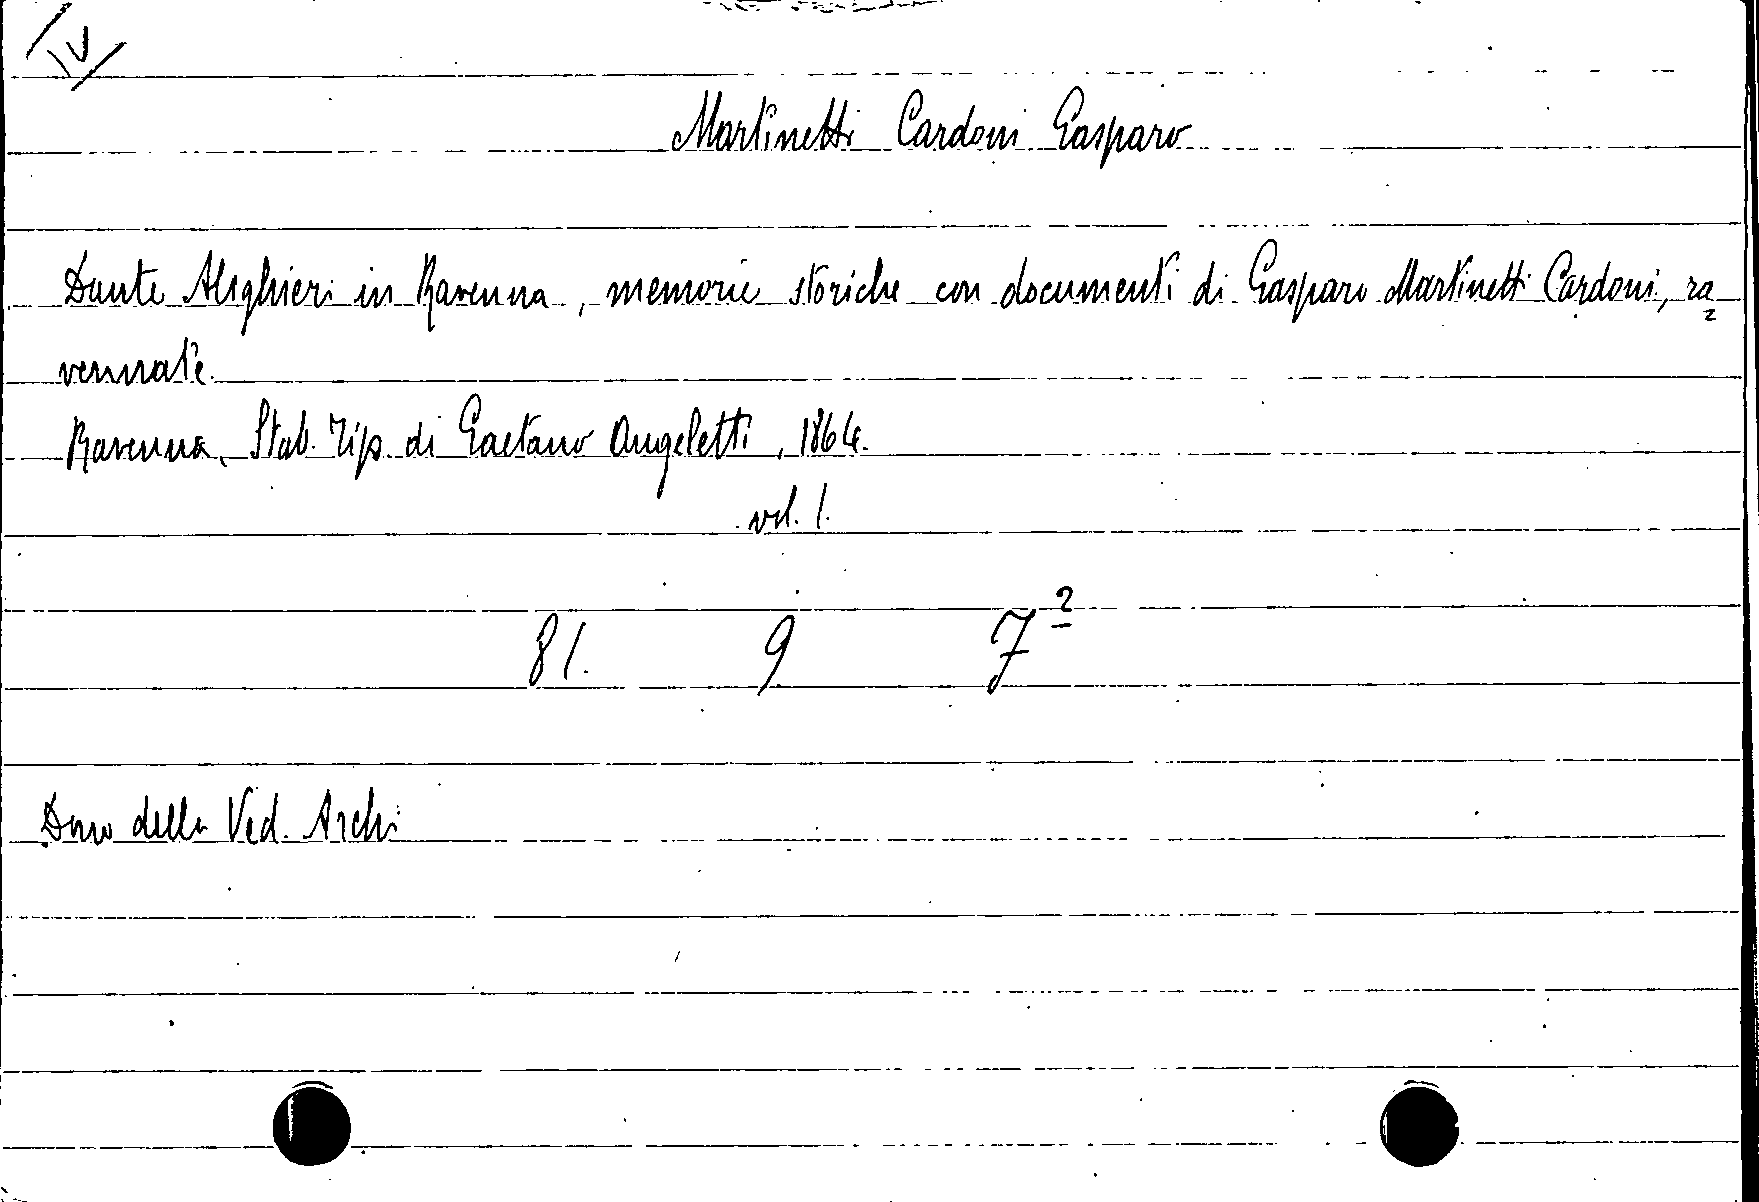 IV
Martinetti Cardoni Gasparo
Dante Alighieri in Ravenna, memorie storiche con documenti di Gasparo Martinetti Cardoni, ra=
vennate.
Ravenna, Stab. Tip. di Gaetano Angeletti, 1864.
vol. 1.
81. 9 7²
Dono della Ved. Archi